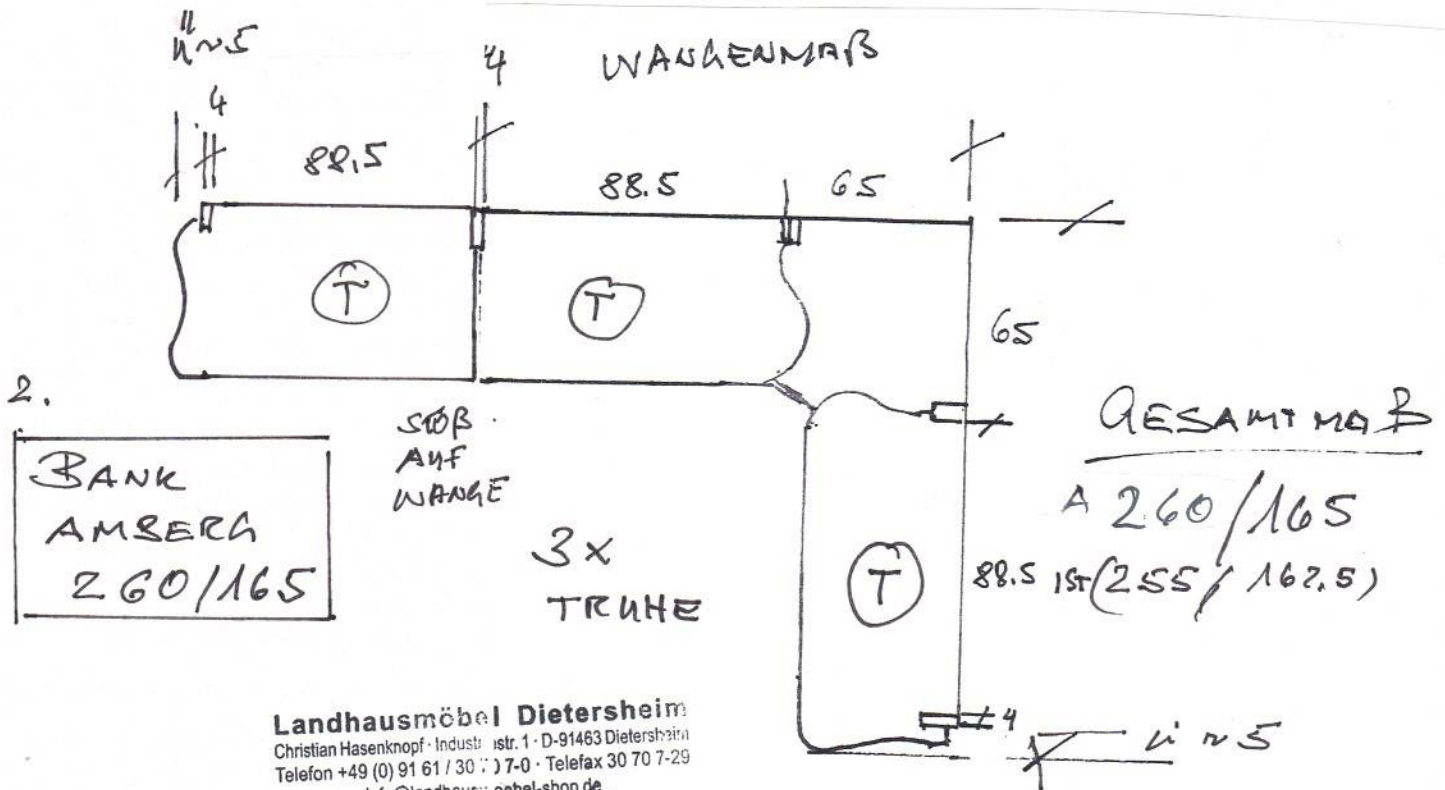 ü ~ 5
4
4
WANGENMAß
88,5
88.5
65
T
T
65
2.
BANK
AMBERG
260/165
STOß
AUF
WANGE
3x
TRUHE
GESAMTMAß
A 260/165
88.5 IST (255 / 162.5)
T
4
ü ~ 5
Landhausmöbel Dietersheim
Christian Hasenknopf · Industriestr. 1 · D-91463 Dietersheim
Telefon +49 (0) 91 61 / 30 7-0 · Telefax 30 70 7-29